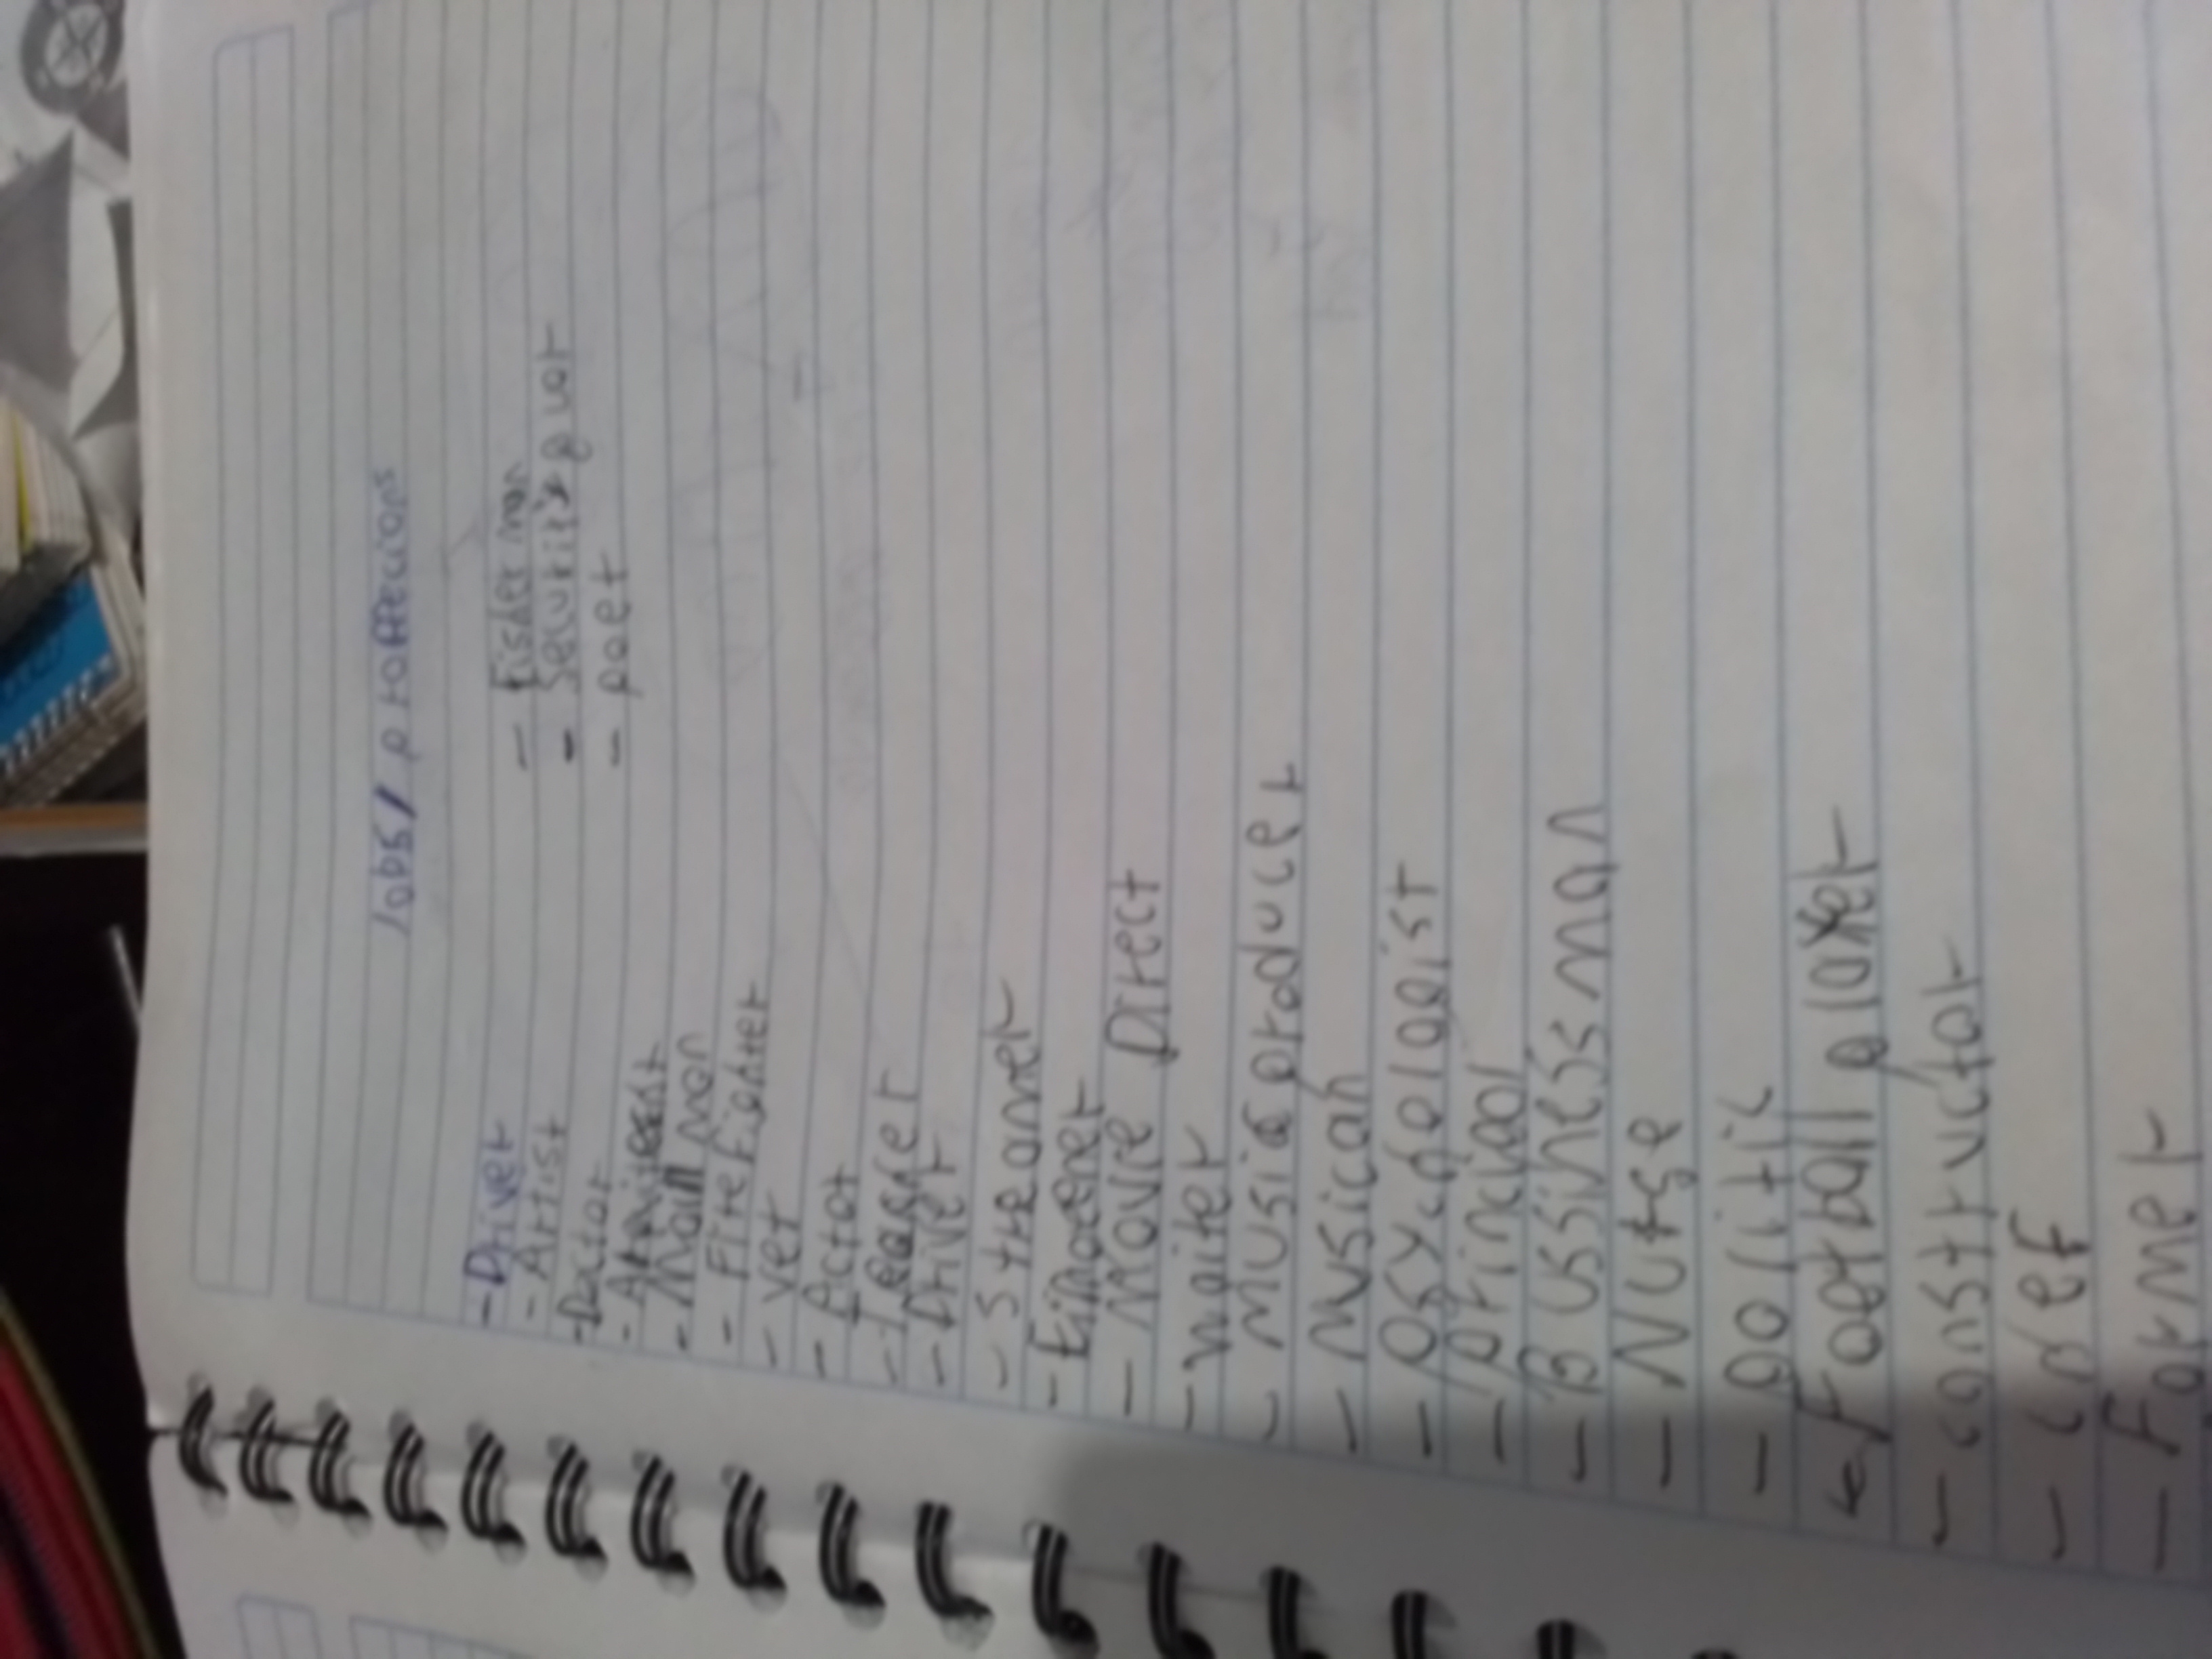 Jobs/ proffecions
- Driver
- Artist
- Doctor
- Mail man
- Firefighter
- vet
- Actor
- Driver
- Streamer
- Movie Direct
- Waiter
- Music producer
- Musican
- Psycologist
- principal
- Bussines man
- Nurse
- politic
- Football player
- constructor
- chef
- Farmer
- Fisher man
- Security guar
- poet